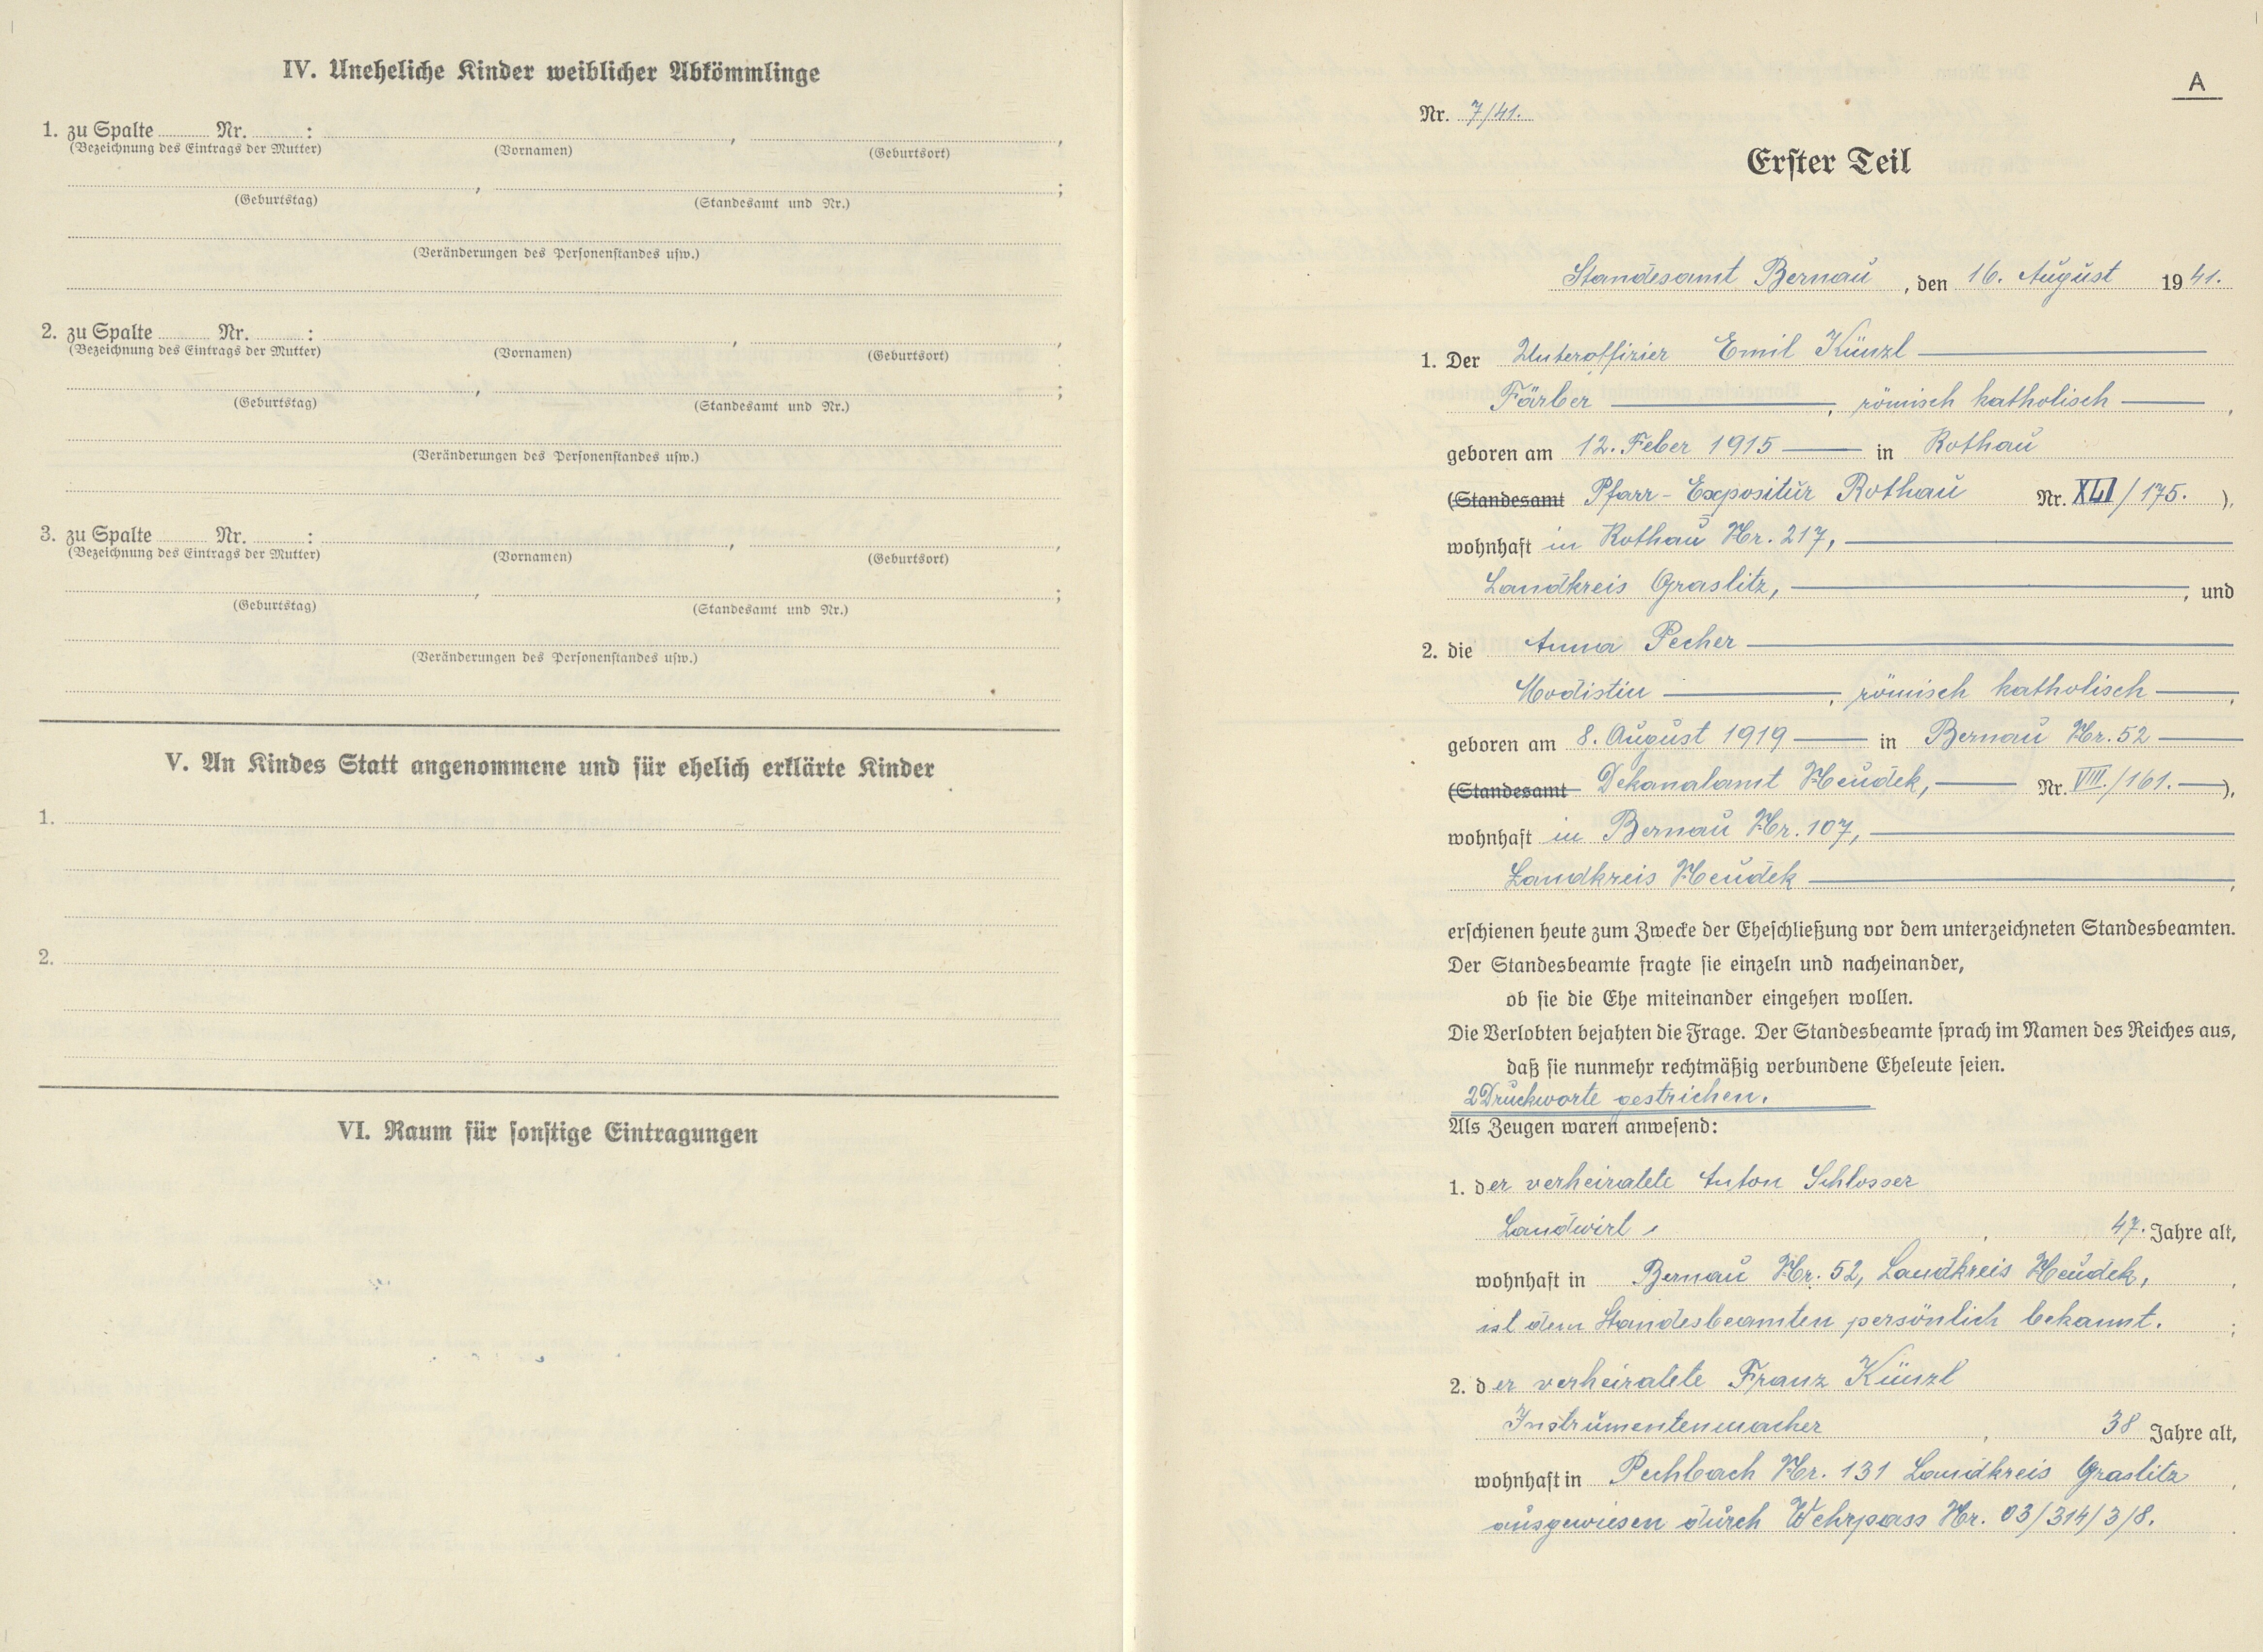 IV. Uneheliche Kinder weiblicher Abkömmlinge
1. zu Spalte Nr. : , ,
(Bezeichnung des Eintrags der Mutter) (Vornamen) (Geburtsort)
, ;
(Geburtstag) (Standesamt und Nr.)
(Veränderungen des Personenstandes usw.)
2. zu Spalte Nr. : , ,
(Bezeichnung des Eintrags der Mutter) (Vornamen) (Geburtsort)
, ;
(Geburtstag) (Standesamt und Nr.)
(Veränderungen des Personenstandes usw.)
3. zu Spalte Nr. : , ,
(Bezeichnung des Eintrags der Mutter) (Vornamen) (Geburtsort)
, ;
(Geburtstag) (Standesamt und Nr.)
(Veränderungen des Personenstandes usw.)
V. An Kindes Statt angenommene und für ehelich erklärte Kinder
1.
2.
VI. Raum für sonstige Eintragungen
A
Nr. 7/41.
Erster Teil
Standesamt Bernau, den 16. August 1941.
1. Der Unteroffizier Emil Künzl
Färber, römisch katholisch,
geboren am 12. Feber 1915 in Rothau
(Standesamt Pfarr-Expositur Rothau Nr. XLI/175.),
wohnhaft in Rothau Nr. 217,
Landkreis Graslitz, , und
2. die Anna Pecher
Modistin, römisch katholisch,
geboren am 8. August 1919 in Bernau Nr. 52
(Standesamt Dekanalamt Neudek, Nr. VIII./161.),
wohnhaft in Bernau Nr. 107,
Landkreis Neudek,
erschienen heute zum Zwecke der Eheschließung vor dem unterzeichneten Standesbeamten.
Der Standesbeamte fragte sie einzeln und nacheinander,
ob sie die Ehe miteinander eingehen wollen.
Die Verlobten bejahten die Frage. Der Standesbeamte sprach im Namen des Reiches aus,
daß sie nunmehr rechtmäßig verbundene Eheleute seien.
2 Druckworte gestrichen.
Als Zeugen waren anwesend:
1. der verheiratete Anton Schlosser
Landwirt, , 47. Jahre alt,
wohnhaft in Bernau Nr. 52, Landkreis Neudek, ,
ist dem Standesbeamten persönlich bekannt. ;
2. der verheiratete Franz Künzl
Instrumentenmacher , 38 Jahre alt,
wohnhaft in Pechbach Nr. 131 Landkreis Graslitz ,
ausgewiesen durch Wehrpass Nr. 03/314/3/8. .